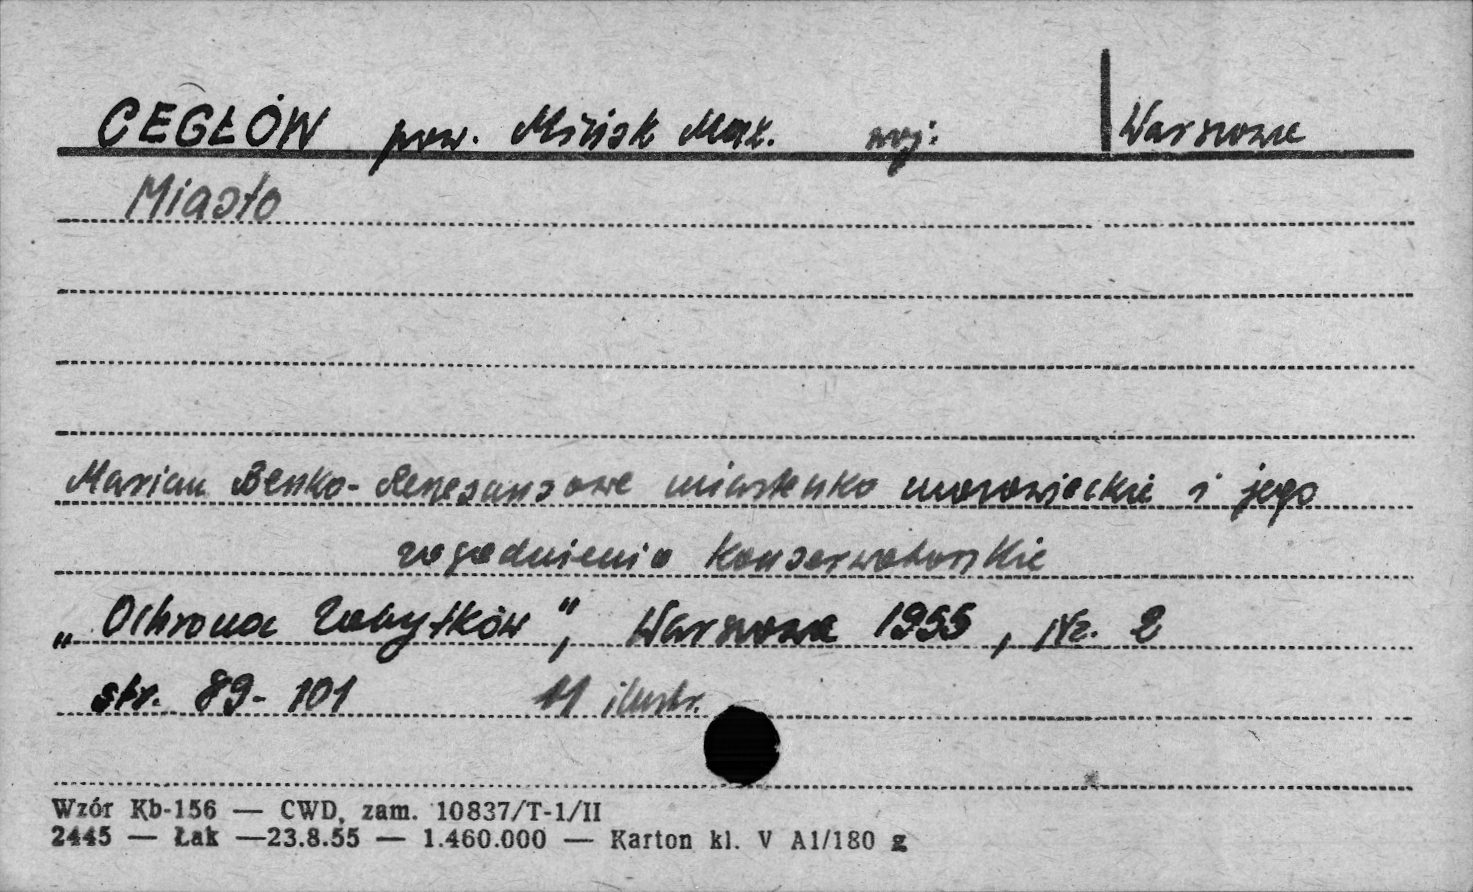 CEGŁÓW pow. Mińsk Maz. woj. Warszawa
Miasto
Marian Benko - Renesansowe miasteczko mazowieckie i jego
zagadnienia konserwatorskie
„Ochrona Zabytków", Warszawa 1955, Nr. 2
str. 89-101 11 ilustr.
Wzór Kb-156 — CWD, zam. 10837/T-1/II
2445 — Łak —23.8.55 — 1.460.000 — Karton kl. V A1/180 g